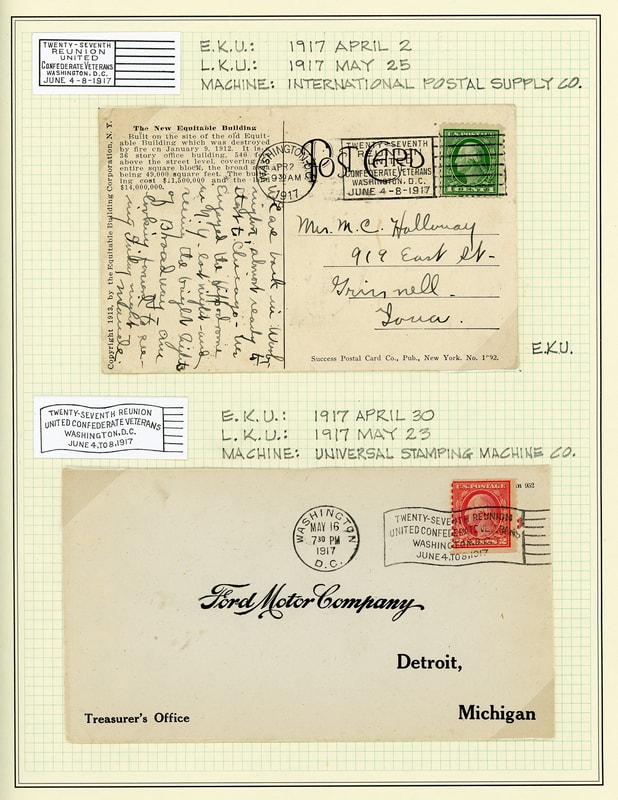 TWENTY-SEVENTH
REUNION
UNITED
CONFEDERATE VETERANS
WASHINGTON, D.C.
JUNE 4-8-1917
E.K.U.: 1917 APRIL 2
L.K.U.: 1917 MAY 25
MACHINE: INTERNATIONAL POSTAL SUPPLY CO.
Copyright 1913, by the Equitable Building Corporation, N. Y.
The New Equitable Building
Built on the site of the old Equit-
able Building which was destroyed
by fire on January 9, 1912. It is a
36 story office building, 540 feet
above the street level, covering
entire square block, the broad
being 49,000 square feet. The build-
ing cost $11,500,000 and the
$14,000,000.
We are back in Wash-
almost ready to
start to Chicago.
enjoyed the Hippodrome
in N.Y. last night and
seeing the bright lights
of Broadway
WASHINGTON
APR 2
9 30 AM
1917
POST CARD
TWENTY-SEVENTH
REUNION
CONFEDERATE VETERANS
WASHINGTON, D.C.
JUNE 4-8-1917
U.S. POSTAGE
Mrs. M. C. Holloway
919 East St-
Grinnell.
Iowa.
Success Postal Card Co., Pub., New York. No. 1092.
E.K.U.
TWENTY-SEVENTH REUNION
UNITED CONFEDERATE VETERANS
WASHINGTON, D.C.
JUNE 4, TO 8, 1917
E.K.U.: 1917 APRIL 30
L.K.U.: 1917 MAY 23
MACHINE: UNIVERSAL STAMPING MACHINE CO.
WASHINGTON
MAY 16
7 30 PM
1917
D.C.
U.S. POSTAGE
952
TWENTY-SEVENTH REUNION
UNITED CONFEDERATE VETERANS
WASHINGTON, D.C.
JUNE 4, TO 8, 1917
Ford Motor Company
Detroit,
Michigan
Treasurer's Office